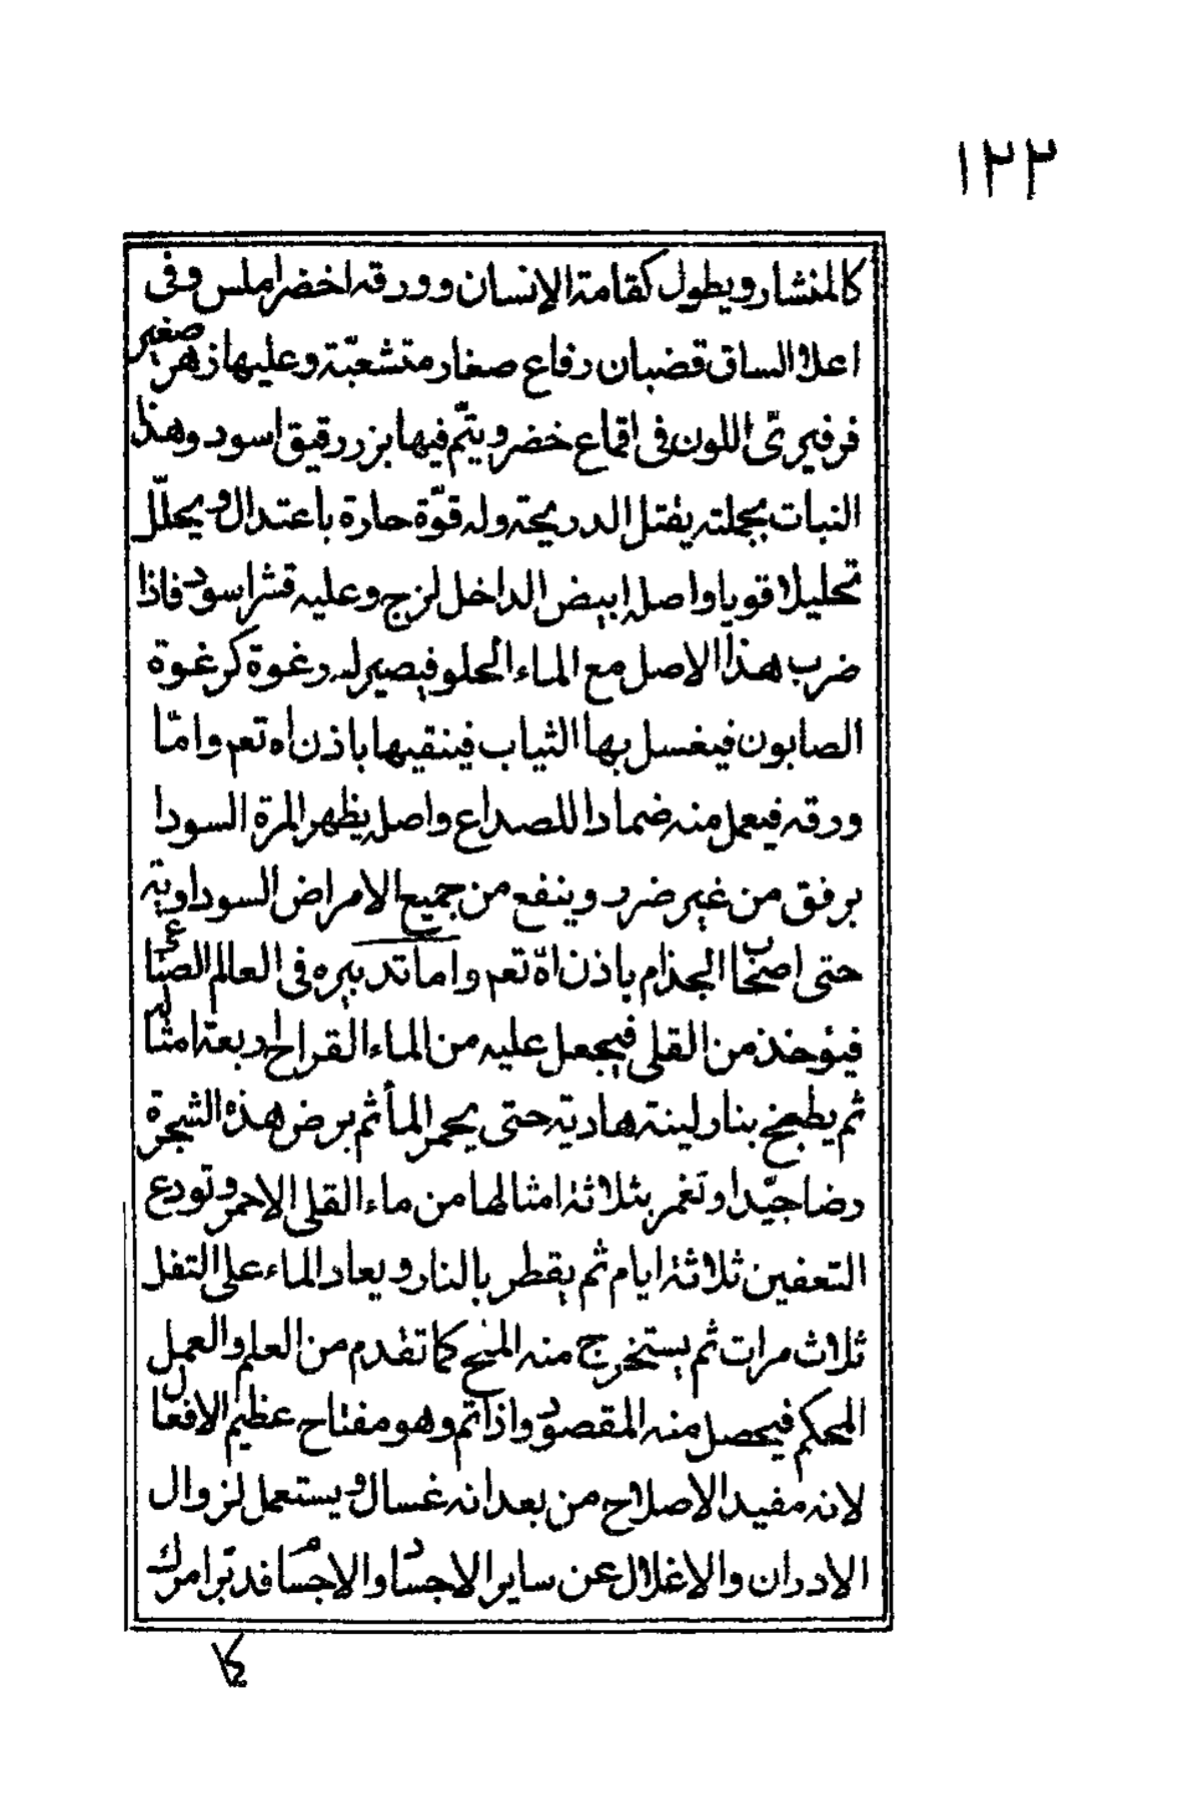 ١٢٢
كالمنشار ويطول كقامة الإنسان وورقه اخضر املس وفى
اعلا الساق قضبان رفاع صغار متشعبّة وعليها زهر صغير
فرفيرىّ اللون فى اقماع خضر ويتّم فيها بزر رقيق اسود وهذا
النبات بجملته يقتل الدريحة وله قوّة حارة باعتدال ويحلّل
تحليلا قويا واصله ابيض الداخل لزج وعليه قشر اسود فاذا
ضرب هذا الاصل مع الماء الحلو فيصير له رغوة كرغوة
الصابون فيغسل بها الثياب فينقيها باذن اه تعم وامّا
ورقه فيعمل منه ضمادا للصداع واصله يظهر المرة السودا
برفق من غير ضرر وينفع من جميع الامراض السوداوية
حتى اصحاب الجذام باذن اه تعم واما تدبيره فى العالم الصناعى
فيؤخذ من القلى فيجعل عليه من الماء القراح اربعة امثاله
ثم يطبخ بنار لينة هادية حتى يحمر المأ ثم برض هذه الشجرة
رضا جيّدا وتغمر بثلاثة امثالها من ماء القلى الاحمر وتودع
التعفين ثلاثة ايام ثم يقطر بالنار ويعاد الماء على التفل
ثلاث مرات ثم يستخرج منه الملح كما تقدم من العلم والعمل
المحكم فيحصل منه المقصود واذا تم وهو مفتاح عظيم الافعال
لانه مفيد الاصلاح من بعد انه غسال ويستعمل لزوال
الادران والاغلال عن ساير الاجساد والاجسام فدبّر امرك
كا